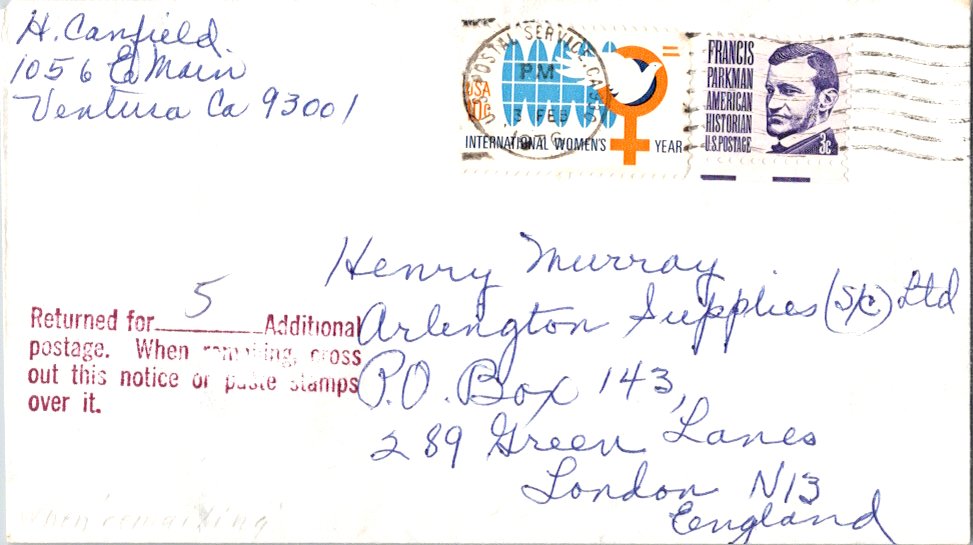 H. Canfield
1056 E. Main
Ventura Ca 93001
U.S. POSTAL SERVICE, CA
PM
3 FEB
1976
USA
10c
INTERNATIONAL WOMEN'S YEAR
FRANCIS
PARKMAN
AMERICAN
HISTORIAN
U.S. POSTAGE
3c
Returned for 5 Additional
postage. When remailing, cross
out this notice or paste stamps
over it.
Henry Murray
Arlington Supplies (S/C) Ltd
P.O. Box 143,
289 Green Lanes
London N13
England